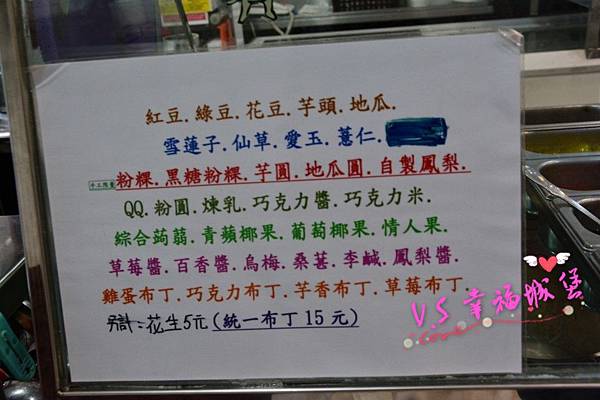 紅豆.綠豆.花豆.芋頭.地瓜.
雪蓮子.仙草.愛玉.薏仁.
手工限量 粉粿.黑糖粉粿.芋圓.地瓜圓.自製鳳梨.
QQ.粉圓.煉乳.巧克力醬.巧克力米.
綜合蒟蒻.青蘋椰果.葡萄椰果.情人果.
草莓醬.百香醬.烏梅.桑葚.李鹹.鳳梨醬.
雞蛋布丁.巧克力布丁.芋香布丁.草莓布丁.
另計:花生5元(統一布丁15元)
V.S 幸福城堡